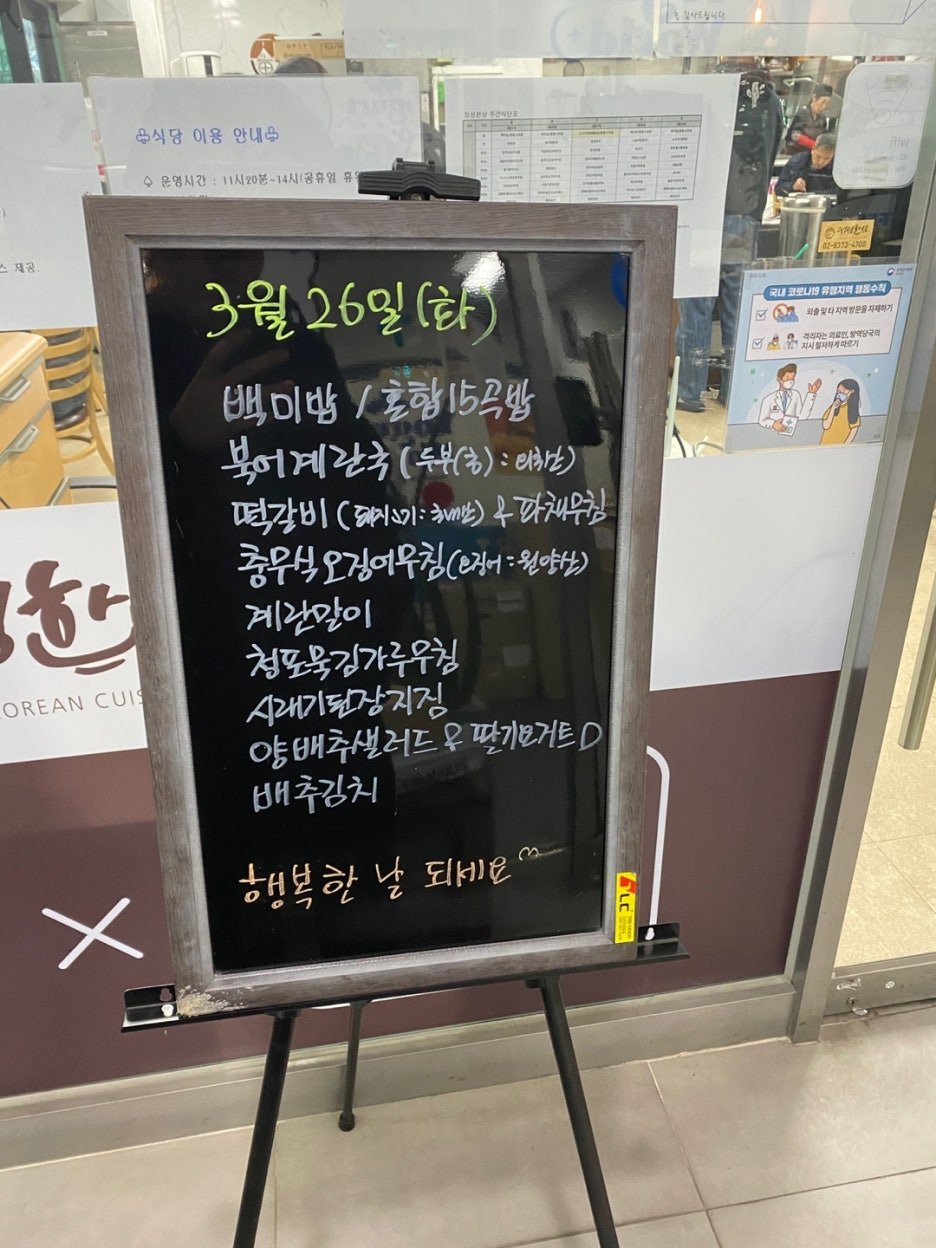 는 감사드립니다.
♧식당 이용 안내♧
운영시간 : 11시20분~14시(공휴일 휴
정성한상 주간식단표
스 제공.
wifi
02-6373-4700
국내 코로나19 유행지역 행동수칙
외출 및 타 지역 방문을 자제하기
격리자는 의료인, 방역당국의
지시 철저하게 따르기
3월 26일(화)
백미밥 / 혼합15곡밥
북어계란국 (두부(콩) : 외국산)
떡갈비 (돼지고기: 국내산) & 파채무침
충무식오징어무침(오징어:원양산)
계란말이
청포묵김가루무침
시래기된장지짐
양배추샐러드 & 딸기요거트D
배추김치
행복한 날 되세요♡
한
OREAN CUIS
LC